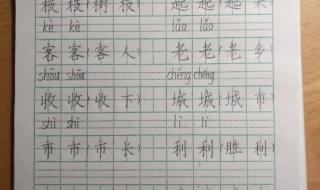 起起(起来
kè kè lǎo lǎo
客客(客人 老老(老乡
shōu shōu chéng chéng
收收(收下 城城(城市
shì shì lì lì
市市(市长 利利(胜利)